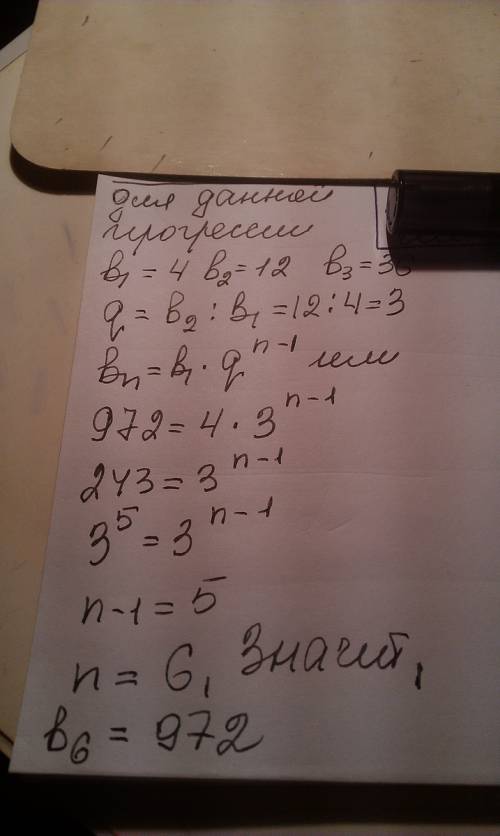 для данной
прогрессии
b₁ = 4 b₂ = 12 b₃ = 36
q = b₂ : b₁ = 12 : 4 = 3
bₙ = b₁ · qⁿ⁻¹ или
972 = 4 · 3ⁿ⁻¹
243 = 3ⁿ⁻¹
3⁵ = 3ⁿ⁻¹
n - 1 = 5
n = 6, Значит,
b₆ = 972